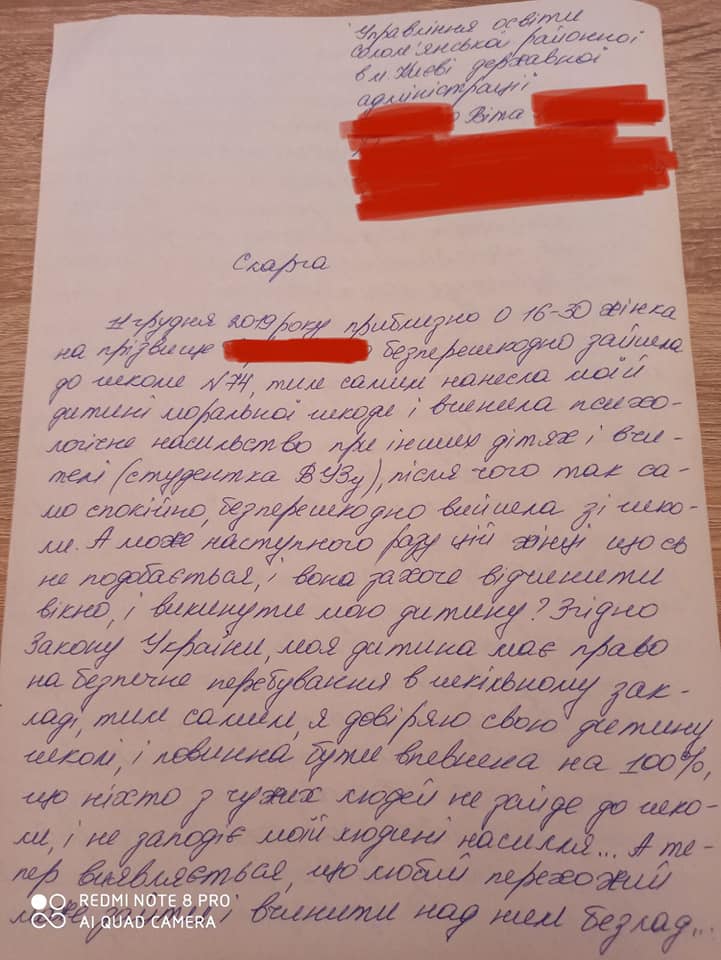 Управління освіти
Солом'янської районної
в м. Києві державної
адміністрації
Віта
Скарга
11 грудня 2019 року приблизно о 16-30 жінка
на прізвище безперешкодно зайшла
до школи №74, тим самим нанесла моїй
дитині моральної шкоди і вчинила психо-
логічне насильство при інших дітях і вчи-
телі (студентка ВУЗу), після чого так са-
мо спокійно, безперешкодно вийшла зі шко-
ли. А може наступного разу цій жінці щось
не подобається, і вона захоче відчинити
вікно, і викинути мою дитину? Згідно
Закону України, моя дитина має право
на безпечне перебування в шкільному зак-
ладі, тим самим, я довіряю свою дитину
школі, і повинна бути впевнена на 100%,
що ніхто з чужих людей не зайде до шко-
ли, і не заподіє моїй людині насилля... А те-
пер виявляється, що любий перехожий
може зайти і вчинити над ним безлад...
REDMI NOTE 8 PRO
AI QUAD CAMERA